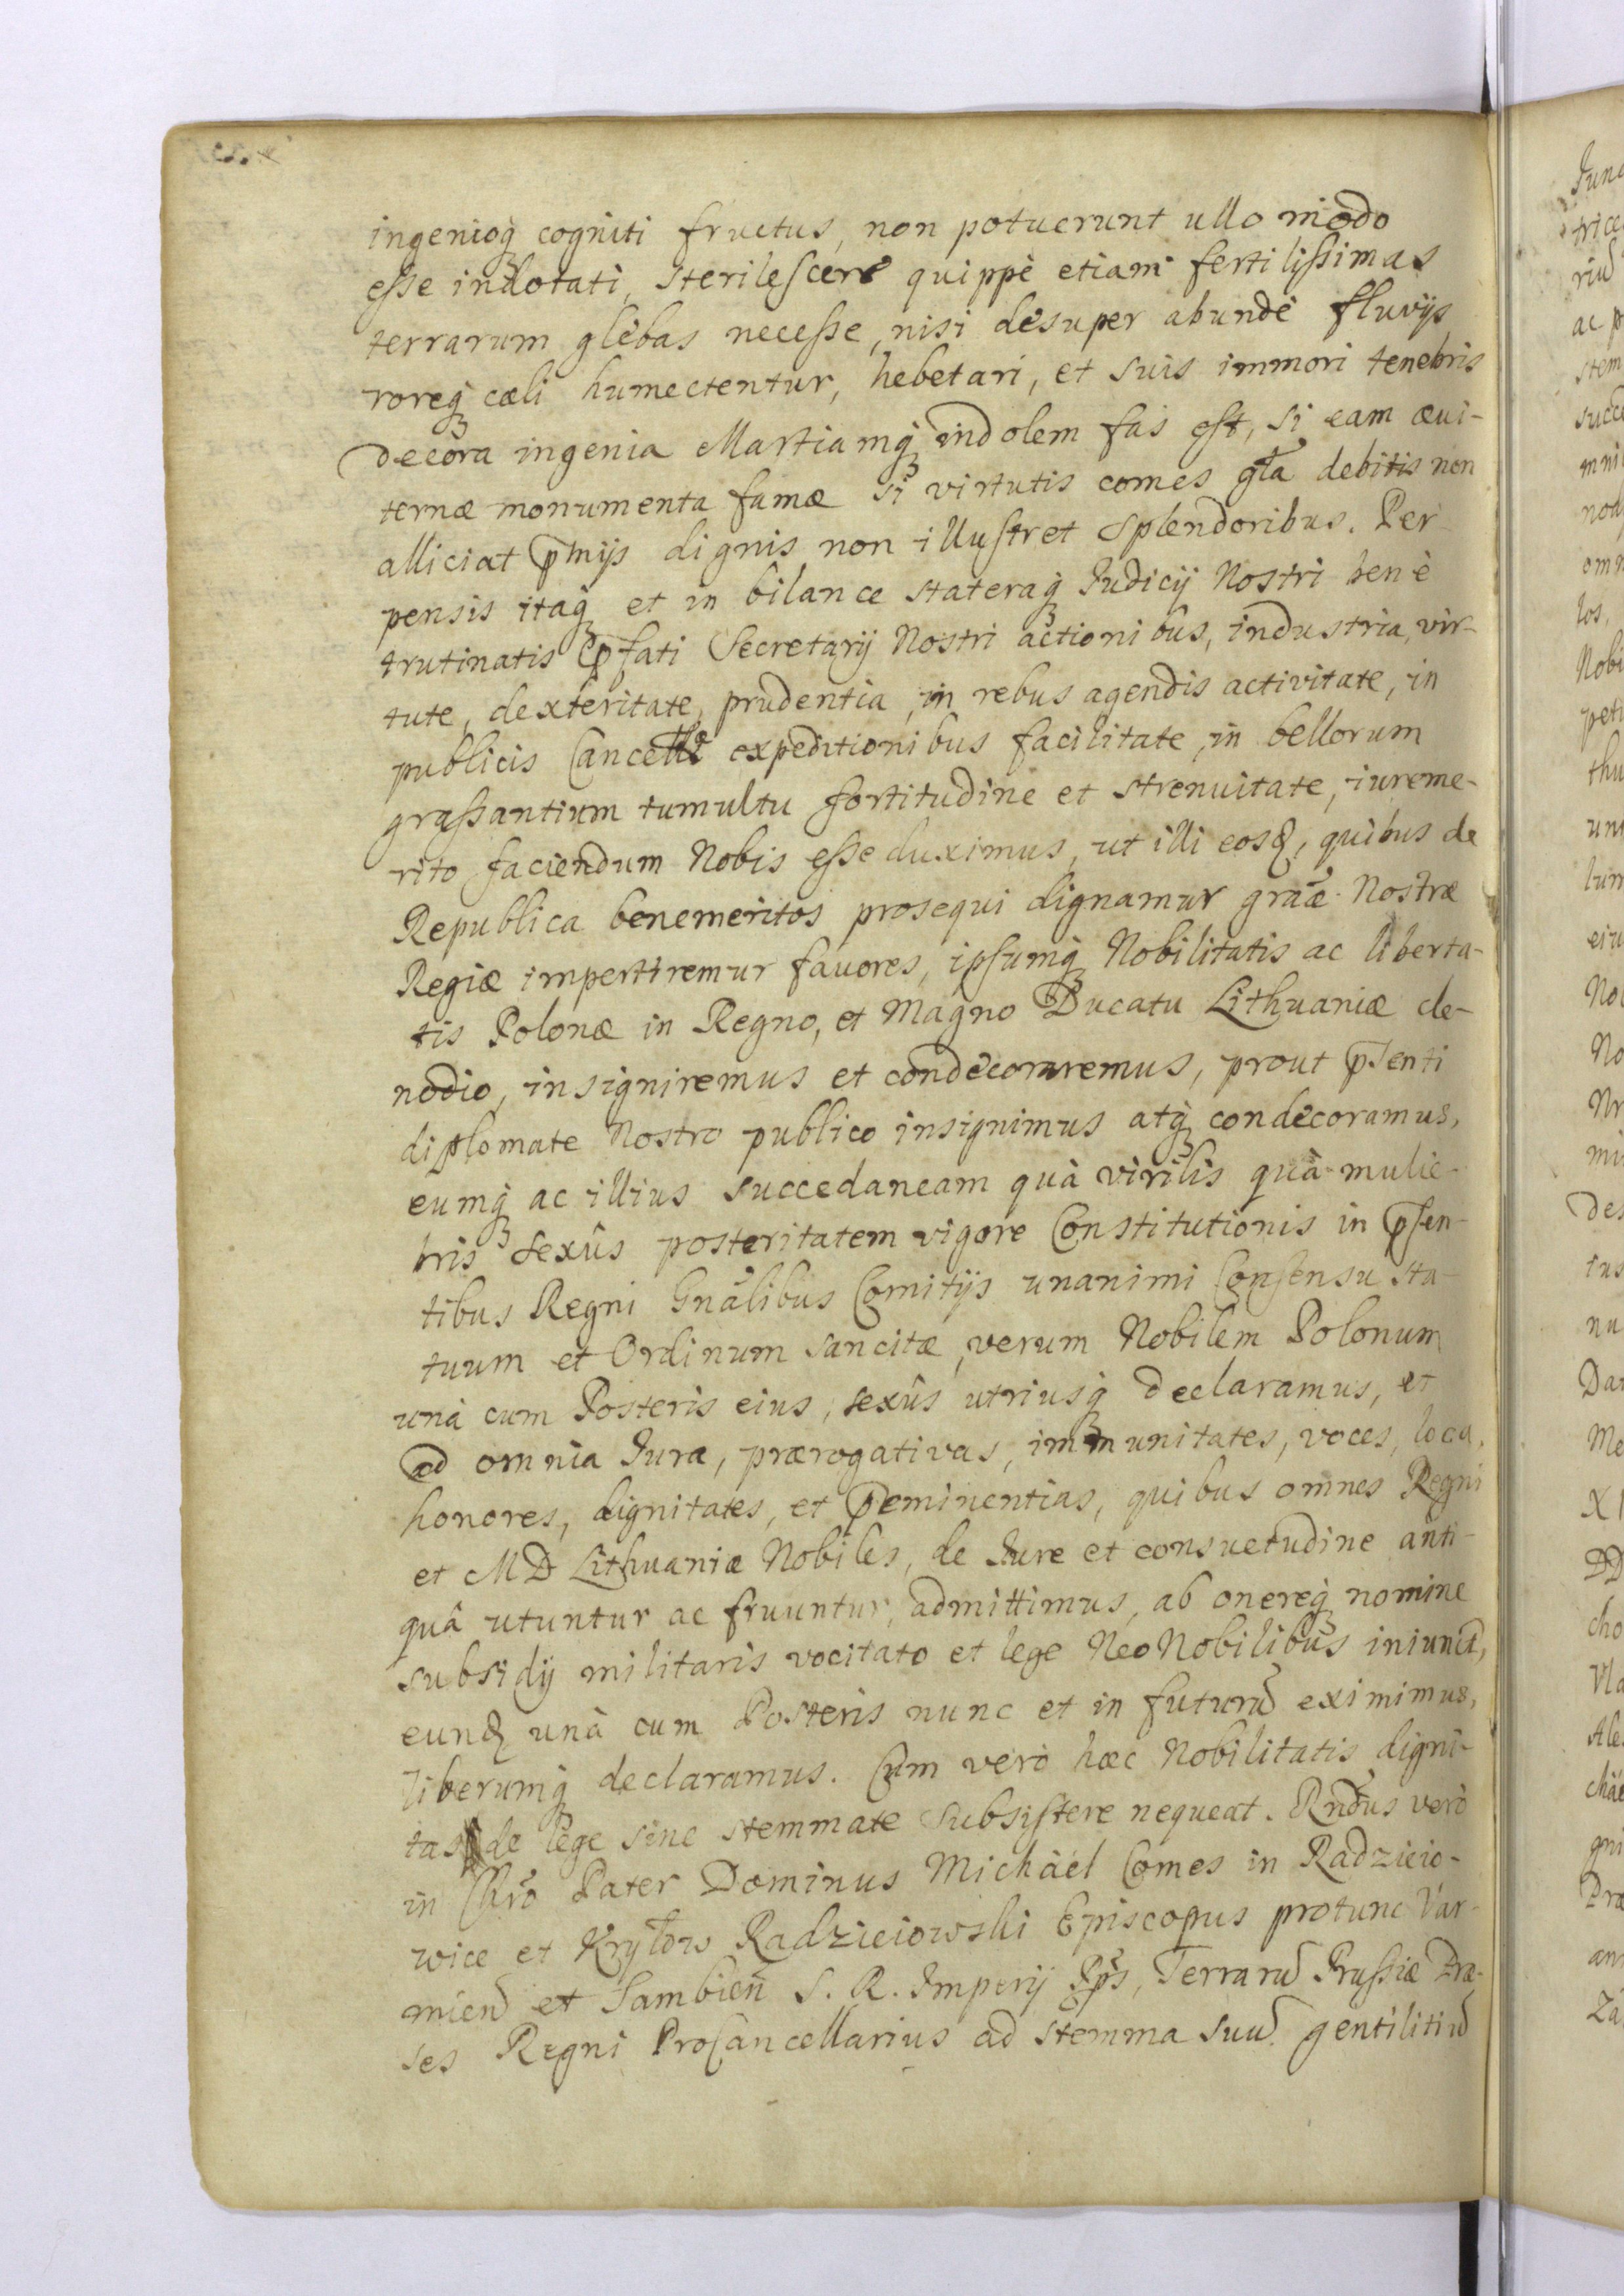 ingenioq̃ cogniti fructus, non potuerunt ullo modo
esse indotati, sterilescere quippè etiam fertilissimas
terrarum glebas necesse, nisi desuper abundè fluvijs
roreq̃ cæli humectentur, hebetari, et suis immori tenebris
decora ingenia Martiamq̃ indolem fas est, si eam ævi-
ternæ monumenta famæ si virtutis comes gĩa debitis non
alliciat p̃mijs dignis non illustret splendoribus. Per-
pensis itaq̃ et in bilance stateraq̃ Judicij Nostri benè
trutinatis p̃fati Secretarij Nostri actionibus, industria, vir-
tute, dexteritate, prudentia, in rebus agendis activitate, in
publicis expeditionibus facilitate, in bellorum
grassantium tumultu fortitudine et strenuitate, iureme-
rito faciendum Nobis esse duximus, ut illi eosq, quibus de
Republica benemeritos prosequi dignamur grãæ Nostræ
Regiæ impertiremur favores, ipsumq̃ Nobilitatis ac liberta-
tis Polonæ in Regno, et Magno Ducatu Lithuaniæ cle-
nodio, insigniremus et condecoraremus, prout p̃senti
diplomate Nostro publico insignimus atq̃ condecoramus,
eumq̃ ac illius succedaneam quà virilis quà mulie-
bris sexûs posteritatem vigore Constitutionis in p̃sen-
tibus Regni Gnãlibus Comitijs unanimi Consensu sta-
tuum et Ordinum sancitæ, verum Nobilem Polonum
unà cum Posteris eius, sexûs utriusq̃ declaramus, et
ad omnia Jura, prærogativas, immunitates, voces, loca,
honores, dignitates, et p̃eminentias, quibus omnes Regni
et M D Lithuaniæ Nobiles, de Jure et consuetudine anti-
quâ utuntur ac fruuntur, admittimus, ab onereq̃ nomine
subsidij militaris vocitato et lege NeoNobilibus iniunct,
eund unà cum Posteris nunc et in futurũ eximimus,
liberumq̃ declaramus. Cum verò hæc Nobilitatis digni-
tas de lege sine stemmate subsistere nequeat. Rñdus verò
in Chrõ Pater Dominus Michàél Comes in Radzieio-
wice et Krylow Radzieiowski Episcopus protunc Var-
mien et Sambieñ S. R. Imperij Pp̃s, Terrarũ Prussiæ Præ-
ses Regni ProCancellarius ad stemma suũ gentilitiũ